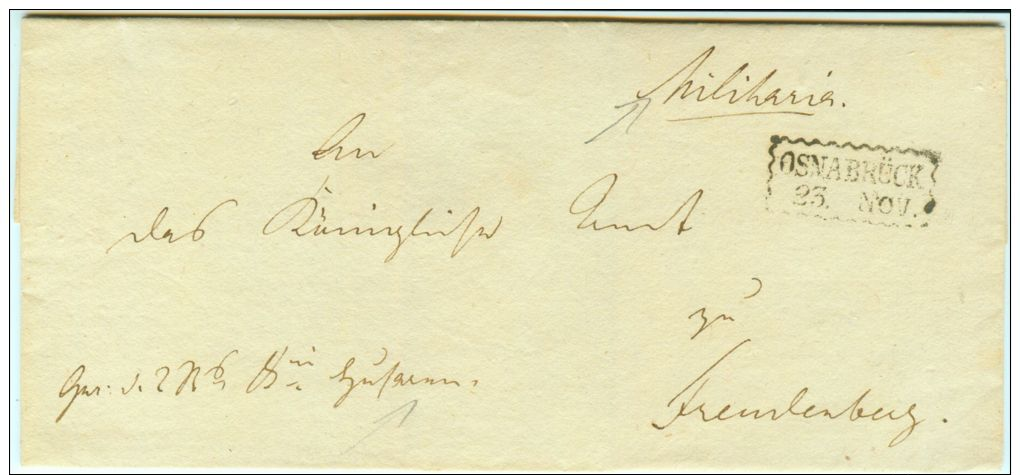 Militaria.
OSNABRÜCK
23. NOV.
An
das Königliche Amt
zu
Freudenberg.
Husaren.